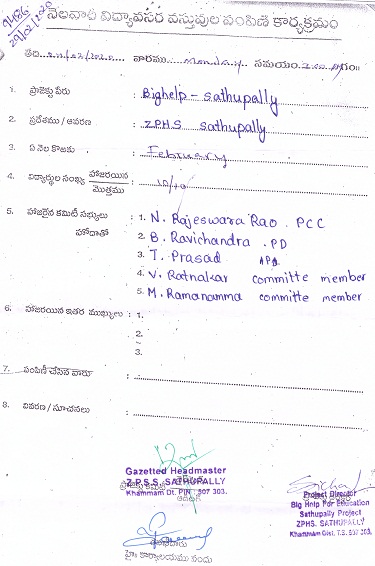 20/02/2020
నెలవారి విద్యావసర వస్తువుల పంపిణి కార్యక్రమం
తేది. వారము monday సమయం.
1. ప్రాజెక్టు పేరు : Bighelp - Sathupally
2. ప్రదేశము / ఆవరణ : ZPHS Sathupally
3. ఏ నెల కొఱకు : February
4. విద్యార్థుల సంఖ్య హాజరయిన / మొత్తము : 10/10
5. హాజరైన కమిటీ సభ్యులు : 1. N. Rajeswara Rao . PCC
హోదాతో 2. B. Ravichandra . PD
3. T. Prasad
4. V. Ratnakar committe member
5. M. Ramanamma committe member
6. హాజరయిన ఇతర ముఖ్యులు : 1.
2.
3.
7. పంపిణీ చేసిన వారు :
8. వివరణ / సూచనలు :
Gazetted Headmaster
Z.P.S.S. SATHUPALLY
Khammam Dt. PIN : 507 303.
Project Director
Big Help For Education
Sathupally Project
ZPHS. SATHUPALLY
Khammam Dist, T.S. 507 303.